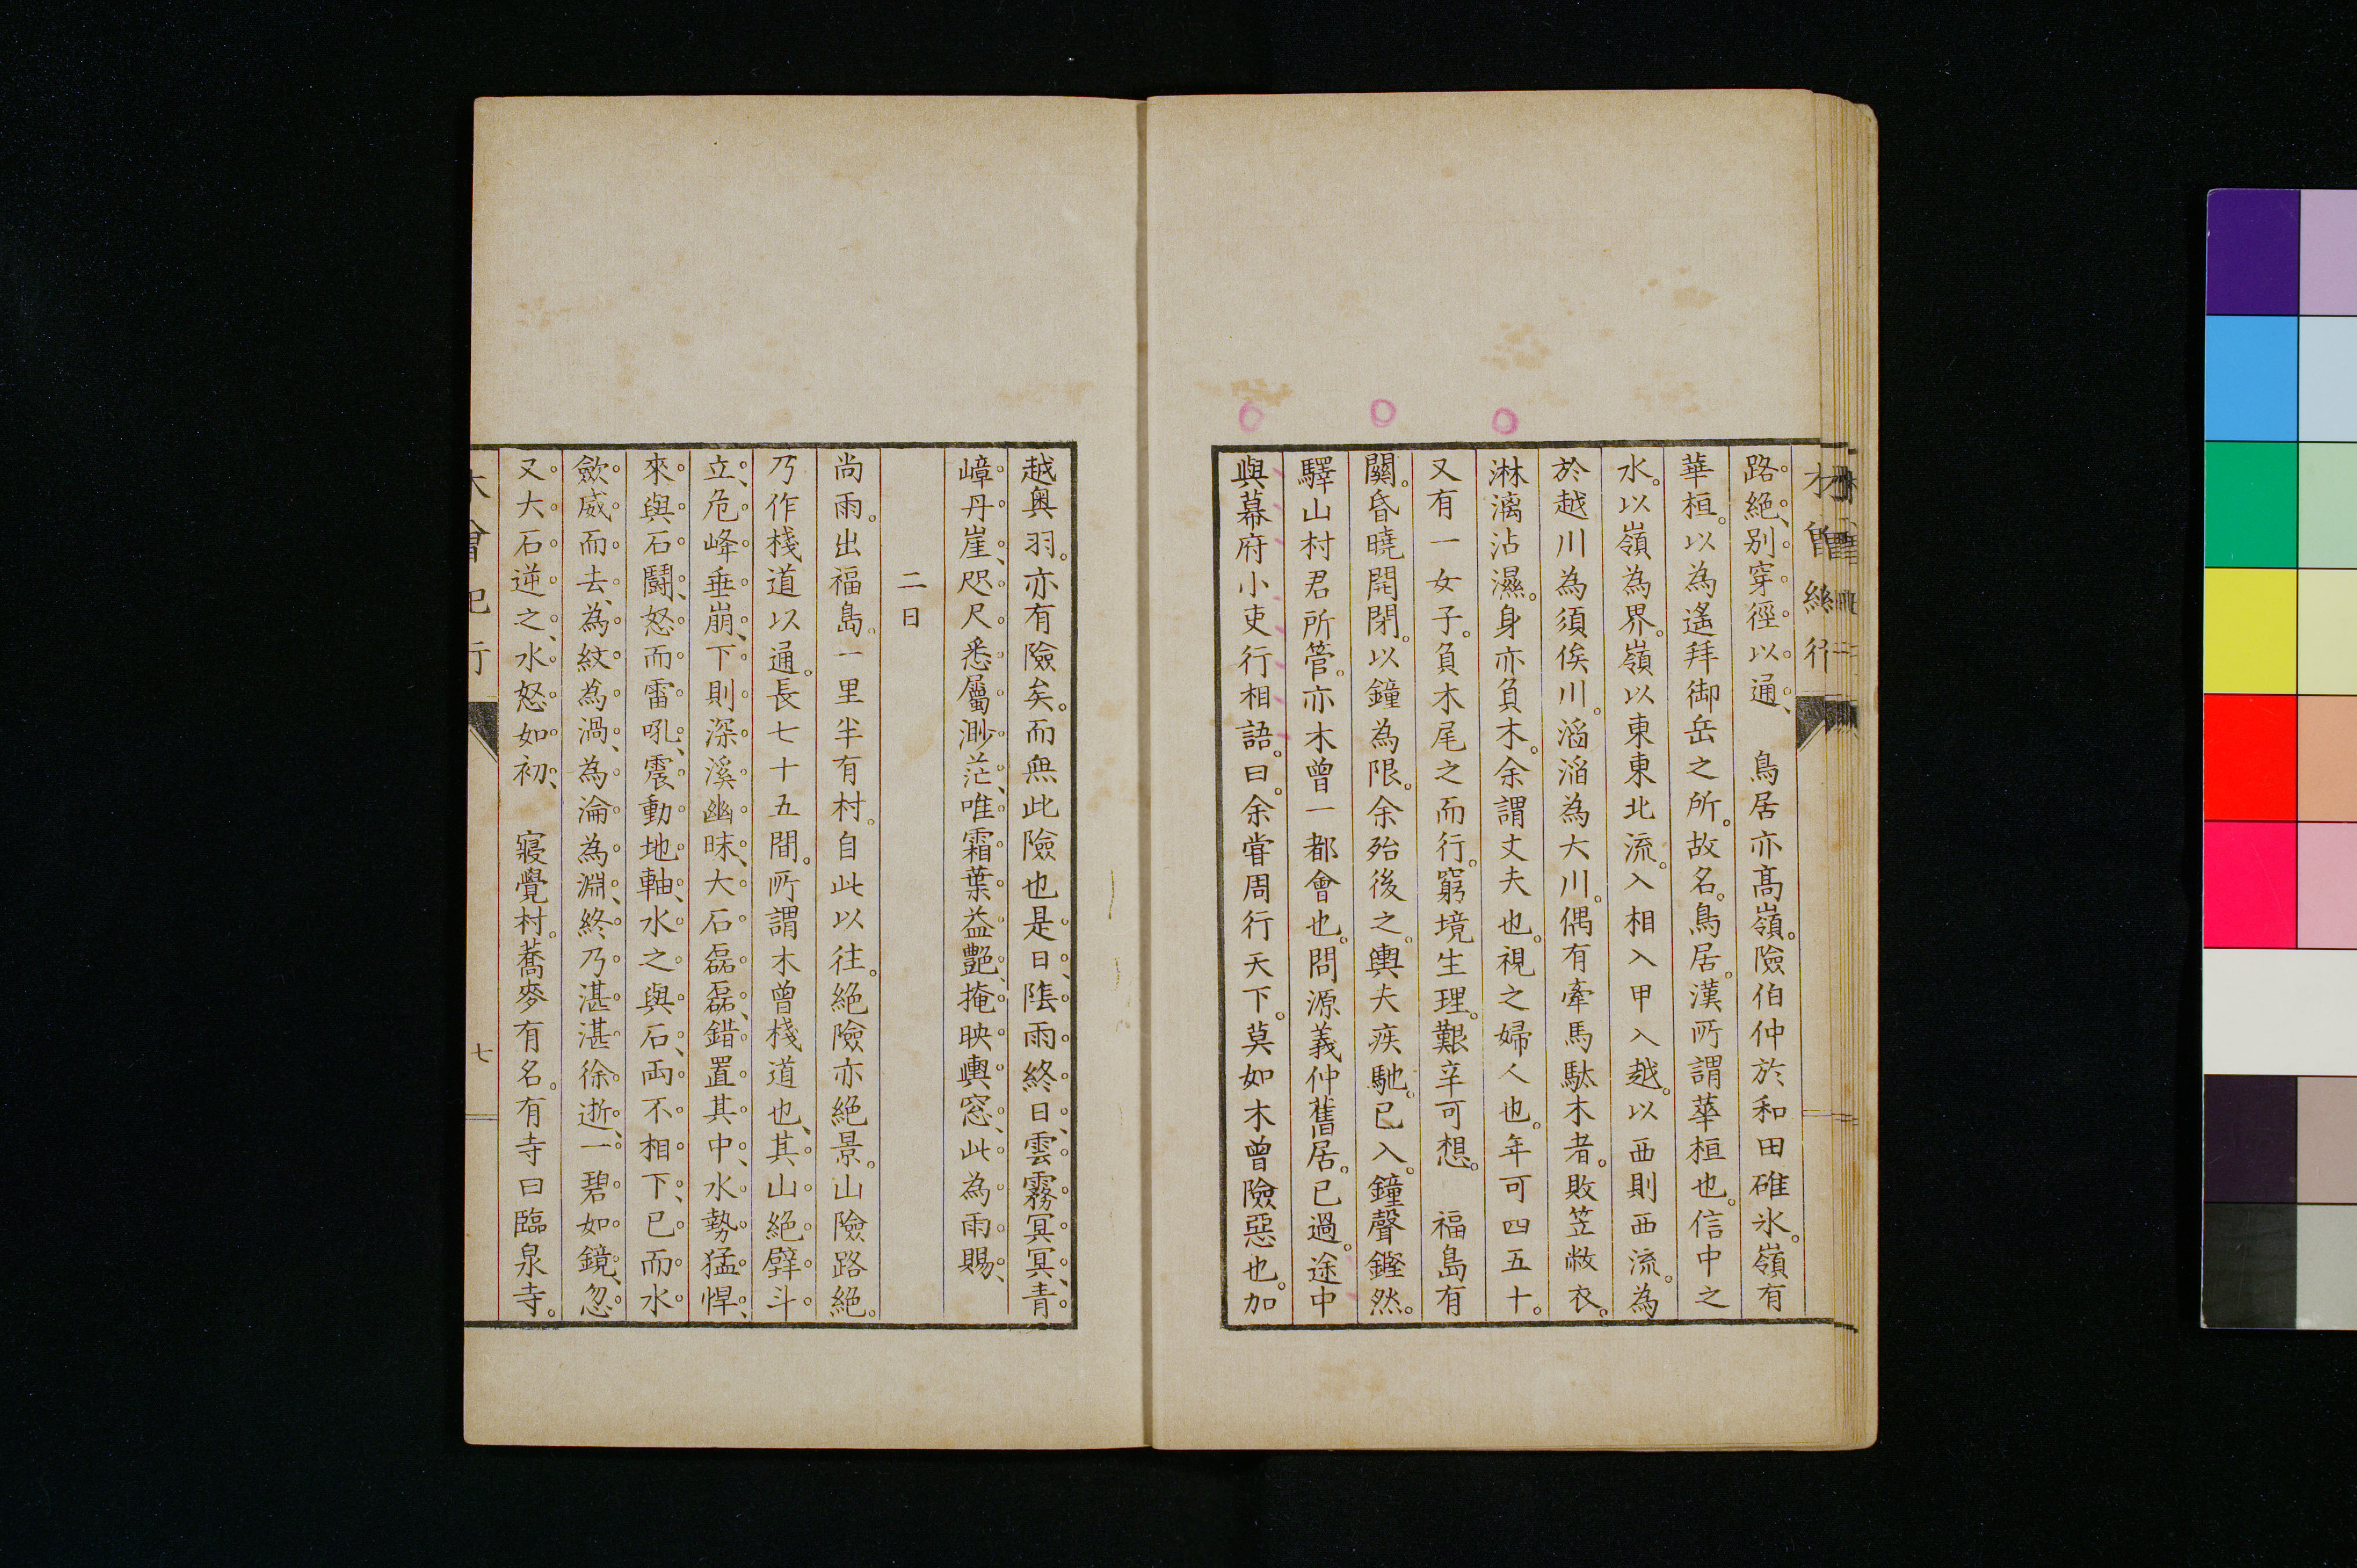 路絶、別穿徑以通、　鳥居亦高嶺。險伯仲於和田碓氷。嶺有
華桓。以為遙拜御岳之所。故名。鳥居。漢所謂華桓也。信中之
水。以嶺為界。嶺以東東北流。入相入甲入越。以西則西流。為
於越川為須俟川。滔滔為大川。偶有牽馬駄木者。敗笠敝衣。
淋漓沾濕。身亦負木。余謂丈夫也。視之婦人也。年可四五十。
又有一女子。負木尾之而行。窮境生理。艱辛可想。　福島有
關。昏曉開閉。以鐘為限。余殆後之。輿夫疾馳。已入。鐘聲鏗然。
驛山村君所管。亦木曾一都會也。問源義仲舊居。已過。途中
與幕府小吏行相語。曰。余甞周行天下。莫如木曾險惡也。加
越奥羽。亦有險矣。而無此險也是日、陰雨終日、雲霧冥冥、青
嶂丹崖、咫尺悉屬渺茫、唯霜葉益艶、掩映輿窓、此為雨賜、
二日
尚雨。出福島。一里半有村。自此以往。絶險亦絶景。山險路絶。
乃作棧道以通。長七十五間。所謂木曾棧道也、其山絶壁斗
立、危峰垂崩、下則深溪幽昧、大石磊磊、錯置其中、水勢猛悍、
來與石鬪、怒而雷吼、震動地軸、水之與石、両不相下、已而水
歛威而去、為紋為渦、為淪為淵、終乃湛湛徐逝、一碧如鏡、忽
又大石逆之、水怒如初、　寢覺村。蕎麥有名。有寺曰臨泉寺。
七